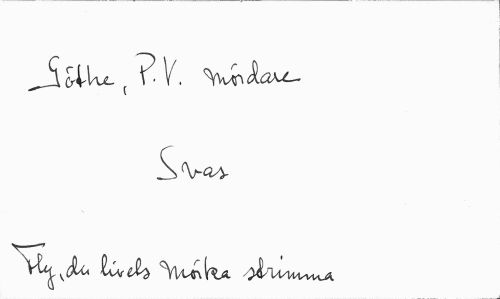 Göthe, P.V. mördare
Svas
Fly, du livets mörka strimma